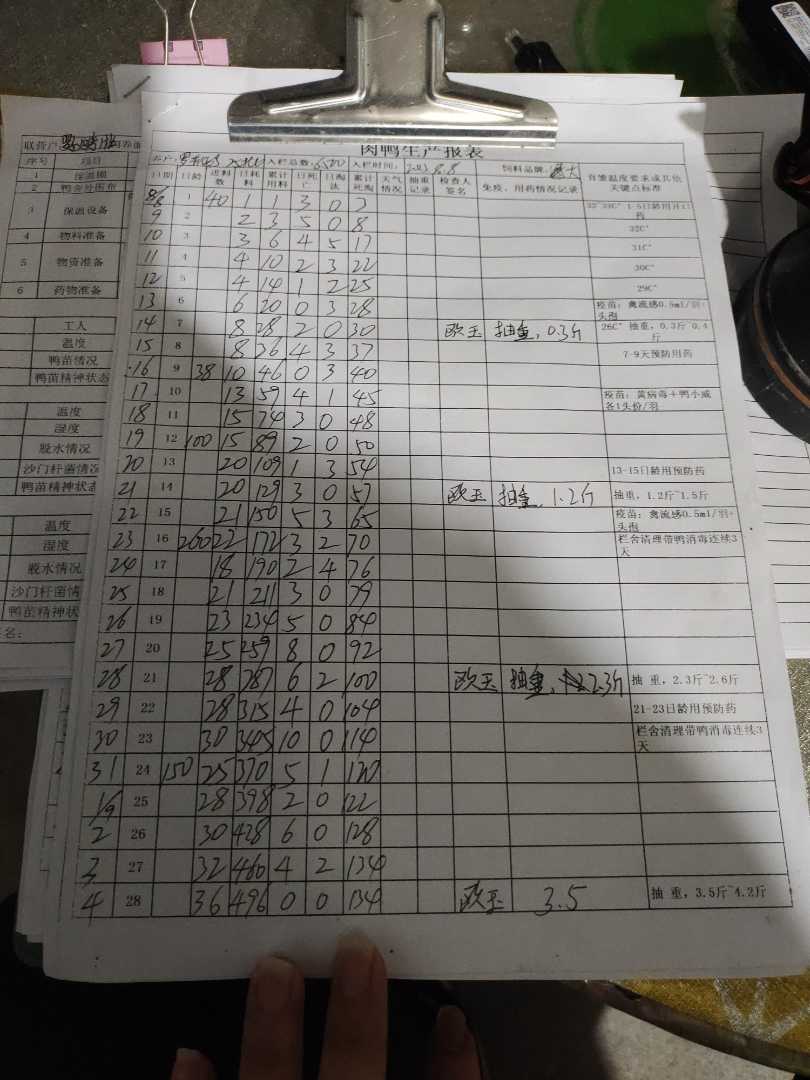 肉鸭生产报表
农户: 入栏总数:6500 入栏时间: 2023.8.8 饲料品牌:
日期 日龄 进料数 日耗料 累计用料 日死亡 日淘汰 累计死淘 天气情况 抽重记录 检查人签名 免疫、用药情况记录 育雏温度要求或其他关键点标准
8/8 1 40 1 1 3 0 3 32~33C° 1-5日龄用开口药
9 2 2 3 5 0 8 32C°
10 3 3 6 4 5 17 31C°
11 4 4 10 2 3 22 30C°
12 5 4 14 1 2 25 29C°
13 6 6 20 0 3 28 疫苗：禽流感0.5ml/羽+头孢
14 7 8 28 2 0 30 欧玉 抽重, 0.3斤 26C° 抽重，0.3斤~0.4斤
15 8 8 26 4 3 37 7-9天预防用药
16 9 38 10 46 0 3 40
17 10 13 59 4 1 45 疫苗：黄病毒+鸭小威各1头份/羽
18 11 15 74 3 0 48
19 12 100 15 89 2 0 50
20 13 20 109 1 3 54 13-15日龄用预防药
21 14 20 129 3 0 57 欧玉 抽重, 1.2斤 抽重，1.2斤~1.5斤
22 15 21 150 5 3 65 疫苗：禽流感0.5ml/羽+头孢
23 16 260 22 172 3 2 70 栏舍清理带鸭消毒连续3天
24 17 18 190 2 4 76
25 18 21 211 3 0 79
26 19 23 234 5 0 84
27 20 25 259 8 0 92
28 21 28 287 6 2 100 欧玉 抽重, 2.3斤 抽 重，2.3斤~2.6斤
29 22 28 315 4 0 104 21-23日龄用预防药
30 23 30 345 10 0 114 栏舍清理带鸭消毒连续3天
31 24 150 25 370 5 1 120
1/9 25 28 398 2 0 122
2 26 30 428 6 0 128
3 27 32 460 4 2 134
4 28 36 496 0 0 134 欧玉 3.5 抽 重，3.5斤~4.2斤
联营户:
序号 项目
1 保温棚
2
3 保温设备
4 物料准备
5 物资准备
6 药物准备
工人
温度
鸭苗情况
鸭苗精神状态
温度
湿度
脱水情况
沙门杆菌情况
鸭苗精神状态
温度
湿度
脱水情况
沙门杆菌情
鸭苗精神状
名: